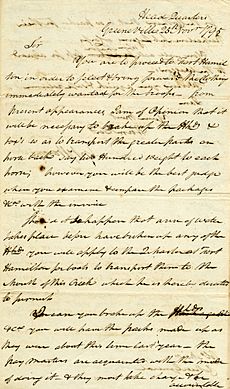 Head Quarters
Greene Ville 25th Novr 1795
Sir
You are to proceed to Fort Hamil
ton in order to select & bring forward the Clothing
immediately wanted for the troops. from
present appearances I am of Opinion that it
will be necessary to brake up the Hhds &
box's so as to transport the greater parts on
horse back say two Hundred weight to each
horse; however you will be the best judge
when you examine & compare the packages
&c with the invoice
Should it so happen that a of water
takes place before have broken up any of the
Hhds you will apply to the Qr Master at Fort
Hamilton for boats to transport them to the
Mouth of this Creek which he is hereby directed
to furnish
In case you broke up the Hhds
&c you will have the packs made up as
they were about this time last year the
pay Masters are acquainted with the mode
of doing it & they must take charge